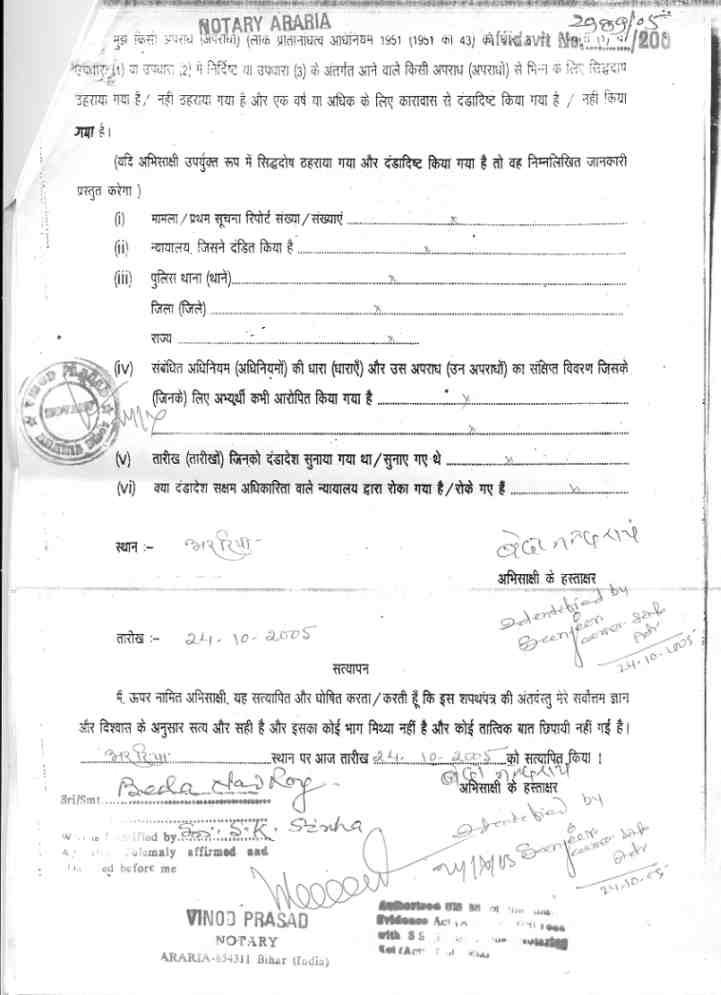 NOTARY ARARIA
2989/05
मुझे किसी अपराध (अपराधों) (लोक प्रतिनिधित्व अधिनियम 1951 (1951 का 43) की Affidavit No. /200
उपधारा (1) या उपधारा (2) में निर्दिष्ट या उपधारा (3) के अंतर्गत आने वाले किसी अपराध (अपराधों) से भिन्न के लिए सिद्धदोष
ठहराया गया है / नहीं ठहराया गया है और एक वर्ष या अधिक के लिए कारावास से दंडादिष्ट किया गया है / नहीं किया
गया है।
(यदि अभिसाक्षी उपर्युक्त रूप में सिद्धदोष ठहराया गया और दंडादिष्ट किया गया है तो वह निम्नलिखित जानकारी
प्रस्तुत करेगा )
(i) मामला / प्रथम सूचना रिपोर्ट संख्या / संख्याएं x
(ii) न्यायालय, जिसने दंडित किया है x
(iii) पुलिस थाना (थाने) x
जिला (जिले) x
राज्य x
(iv) संबंधित अधिनियम (अधिनियमों) की धारा (धाराएँ) और उस अपराध (उन अपराधों) का संक्षिप्त विवरण जिसके
(जिनके) लिए अभ्यर्थी कभी आरोपित किया गया है x
x
(v) तारीख (तारीखों) जिनको दंडादेश सुनाया गया था / सुनाए गए थे x
(vi) क्या दंडादेश सक्षम अधिकारिता वाले न्यायालय द्वारा रोका गया है / रोके गए हैं x
स्थान :- अररिया
बेदा नन्द राय
अभिसाक्षी के हस्ताक्षर
Identified by
24-10-2005
तारीख :- 24-10-2005
सत्यापन
मैं, ऊपर नामित अभिसाक्षी, यह सत्यापित और घोषित करता / करती हूँ कि इस शपथपत्र की अंतर्वस्तु मेरे सर्वोत्तम ज्ञान
और विश्वास के अनुसार सत्य और सही है और इसका कोई भाग मिथ्या नहीं है और कोई तात्विक बात छिपायी नहीं गई है।
अररिया स्थान पर आज तारीख 24-10-2005 को सत्यापित किया ।
बेदा नन्द राय
अभिसाक्षी के हस्ताक्षर
Sri/Smt Beda Nand Roy
identified by S.K. Sinha
Solemnly affirmed and
before me
Identified by
24/10/05
24.10.05
VINOD PRASAD
NOTARY
ARARIA-854311 Bihar (India)
Authorised
Evidence Act
with